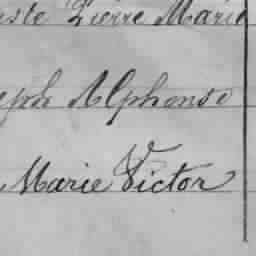 iste Pierre Marie
eph Alphonse
Marie Victor